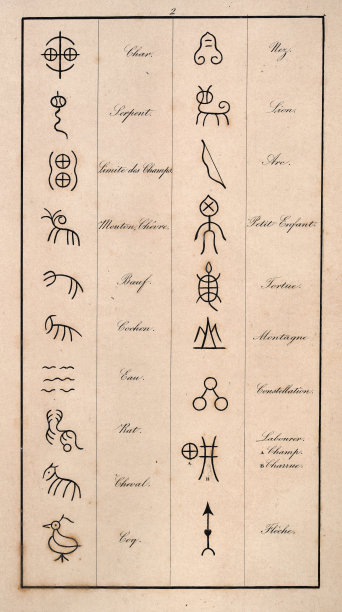 2
Char.
Serpent.
Limite des Champs.
Mouton, Chèvre.
Bœuf.
Cochon.
Eau.
Rat.
Cheval.
Coq.
Nez.
Lion.
Arc.
Petit Enfant.
Tortue.
Montagne
Constellation.
Labourer.
A Champ.
B Charrue.
A
B
Flèche.